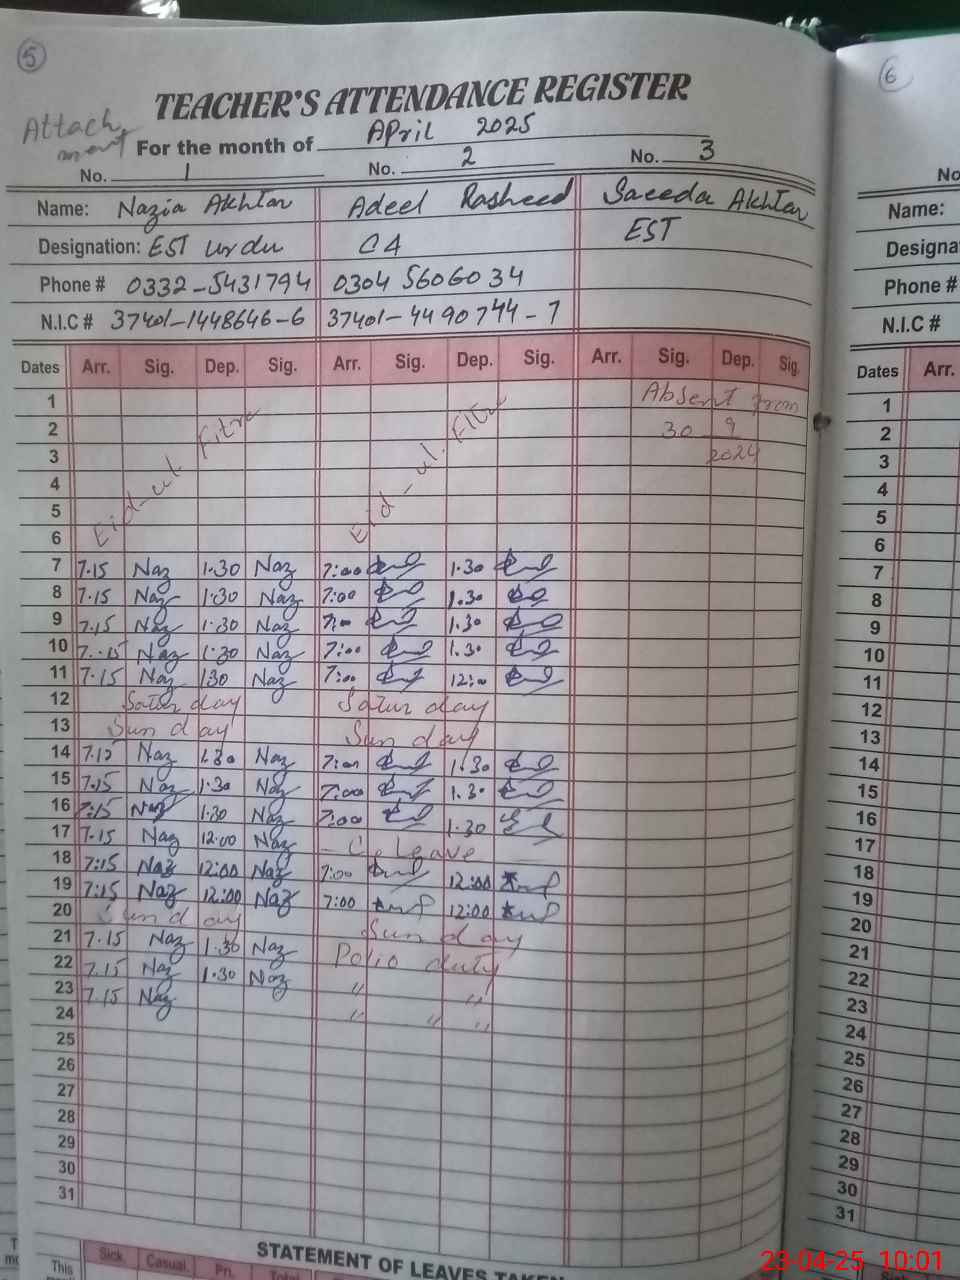 5
6
TEACHER'S ATTENDANCE REGISTER
Attach
ment
For the month of April 2025
No. 1 No. 2 No. 3
Name: Nazia Akhtar Adeel Rasheed Saeeda Akhtar
Designation: EST Urdu C4 EST
Phone # 0332-5431794 0304 5606034
N.I.C # 37401-1448646-6 37401-4490744-7
Dates Arr. Sig. Dep. Sig. Arr. Sig. Dep. Sig. Arr. Sig. Dep. Sig.
1 Absent from
2 30 9
3 2024
4
5
6
Eid-ul Fitre Eid-ul. Fitre
7 7.15 Naz 1.30 Naz 7:00 1.30
8 7.15 Naz 1.30 Naz 7:00 1.30
9 7.15 Naz 1.30 Naz 7:00 1.30
10 7.15 Naz 1.30 Naz 7:00 1.30
11 7.15 Naz 130 Naz 7:00 12:00
12 Saturday Saturday
13 Sunday Sunday
14 7.15 Naz 1.30 Naz 7:00 1.30
15 7.15 Naz 1.30 Naz 7:00 1.30
16 7:15 Naz 1.30 Naz 7:00 1.30
17 7.15 Naz 12.00 Naz - C. Leave
18 7:15 Naz 12:00 Naz 7:00 12:00
19 7:15 Naz 12:00 Naz 7:00 12:00
20 Sunday Sunday
21 7.15 Naz 1.30 Naz Polio duty
22 7.15 Naz 1.30 Naz " "
23 7.15 Naz " " "
24
25
26
27
28
29
30
31
STATEMENT OF LEAVES TAKEN
This Sick Casual Pri. Total
No
Name:
Designa
Phone #
N.I.C #
Dates Arr.
1
2
3
4
5
6
7
8
9
10
11
12
13
14
15
16
17
18
19
20
21
22
23
24
25
26
27
28
29
30
31
23-04-25 10:01